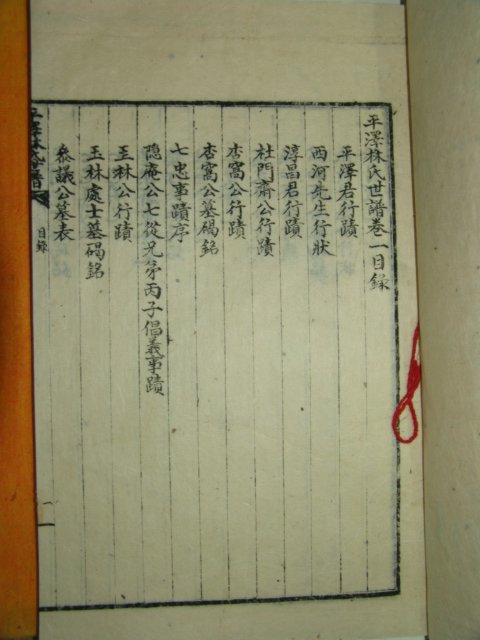 平澤林氏世譜卷一目錄
平澤君行蹟
西河先生行狀
淳昌君行蹟
杜門齋公行蹟
杏窩公行蹟
杏窩公墓碣銘
七忠事蹟序
隐庵公七從兄弟丙子倡義事蹟
玉林公行蹟
玉林處士墓碣銘
叅議公墓表
平澤林氏世譜
目錄
一